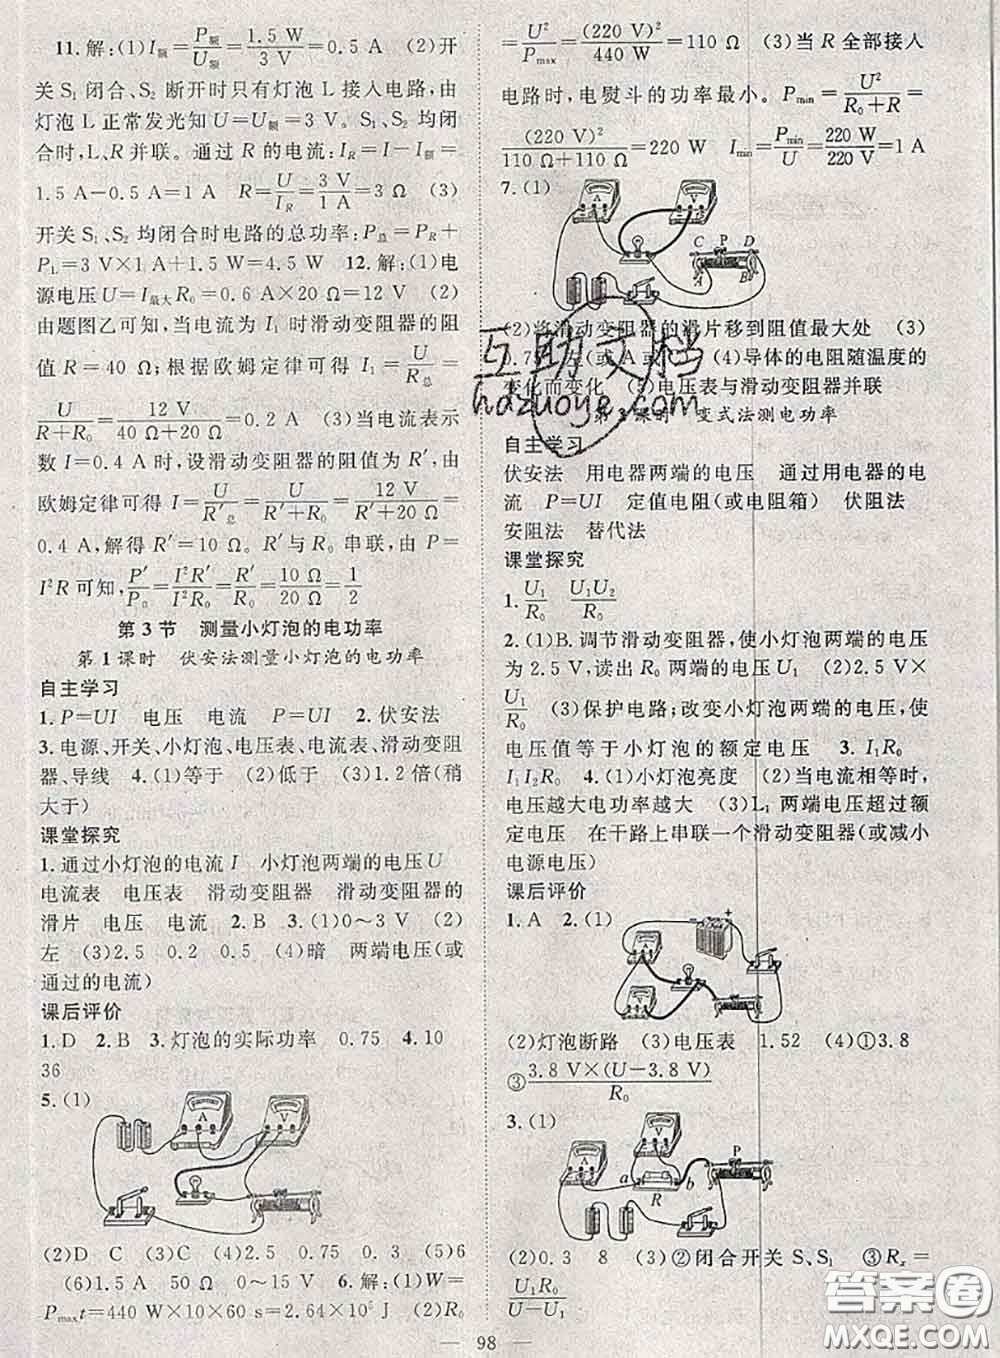 11.解:(1)I额=P额/U额=1.5 W/3 V=0.5 A　(2)开
关 S₁ 闭合、S₂ 断开时只有灯泡 L 接入电路,由
灯泡 L 正常发光知 U=U额=3 V。S₁、S₂ 均闭
合时,L、R 并联。通过 R 的电流:I_R=I-I额=
1.5 A-0.5 A=1 A　R=U/I_R=3 V/1 A=3 Ω　(3)
开关 S₁、S₂ 均闭合时电路的总功率:P总=P_R+
P_L=3 V×1 A+1.5 W=4.5 W　12.解:(1)电
源电压 U=I最大R₀=0.6 A×20 Ω=12 V　(2)
由题图乙可知,当电流为 I₁ 时滑动变阻器的阻
值 R=40 Ω。根据欧姆定律可得 I₁=U/R总=
U/(R+R₀)=12 V/(40 Ω+20 Ω)=0.2 A　(3)当电流表示
数 I=0.4 A 时,设滑动变阻器的阻值为 R′,由
欧姆定律可得 I=U/R′总=U/(R′+R₀)=12 V/(R′+20 Ω)=
0.4 A,解得 R′=10 Ω。R₀与 R′串联,由 P=
I²R 可知,P′/P₀=I²R′/I²R₀=R′/R₀=10 Ω/20 Ω=1/2
第 3 节　测量小灯泡的电功率
第 1 课时　伏安法测量小灯泡的电功率
自主学习
1.P=UI　电压　电流　P=UI　2.伏安法
3.电源、开关、小灯泡、电压表、电流表、滑动变阻
器、导线　4.(1)等于　(2)低于　(3)1.2 倍(稍
大于)
课堂探究
1.通过小灯泡的电流 I　小灯泡两端的电压 U
电流表　电压表　滑动变阻器　滑动变阻器的
滑片　电压　电流　2.B　3.(1)0～3 V　(2)
左　(3)2.5　0.2　0.5　(4)暗　两端电压(或
通过的电流)
课后评价
1.D　2.B　3.灯泡的实际功率　0.75　4.10
36
5.(1)
A　V
(2)D　C　(3)C　(4)2.5　0.75　0.3　(5)6
(6)1.5 A　50 Ω　0～15 V　6.解:(1)W=
Pmax t=440 W×10×60 s=2.64×10⁵ J　(2)R₀
=U²/Pmax=(220 V)²/440 W=110 Ω　(3)当 R 全部接入
电路时,电熨斗的功率最小。Pmin=U²/(R₀+R)=
(220 V)²/(110 Ω+110 Ω)=220 W　Imin=Pmin/U=220 W/220 V=1 A
7.(1)
A　V
C　P　D
A　B
(2)将滑动变阻器的滑片移到阻值最大处　(3)
(4)导体的电阻随温度的
变化而变化　(5)电压表与滑动变阻器并联
课时　变式法测电功率
自主学习
伏安法　用电器两端的电压　通过用电器的电
流　P=UI　定值电阻(或电阻箱)　伏阻法
安阻法　替代法
课堂探究
1.U₁/R₀　U₁U₂/R₀
2.(1)B.调节滑动变阻器,使小灯泡两端的电压
为 2.5 V,读出 R₀ 两端的电压 U₁　(2)2.5 V×
U₁/R₀　(3)保护电路;改变小灯泡两端的电压,使
电压值等于小灯泡的额定电压　3.I₁R₀
I₁I₂R₀　4.(1)小灯泡亮度　(2)当电流相等时,
电压越大电功率越大　(3)L₁ 两端电压超过额
定电压　在干路上串联一个滑动变阻器(或减小
电源电压)
课后评价
1.A　2.(1)
- +
A
V
(2)灯泡断路　(3)电压表　1.52　(4)①3.8
③3.8 V×(U-3.8 V)/R₀
3.(1)
V
A　a　R　b　P
(2)0.3　8　(3)②闭合开关 S、S₁　③Rₓ=
U₁R₀/(U-U₁)
98
互助文档
hdzuoye.com
答案圈
MXQE.COM